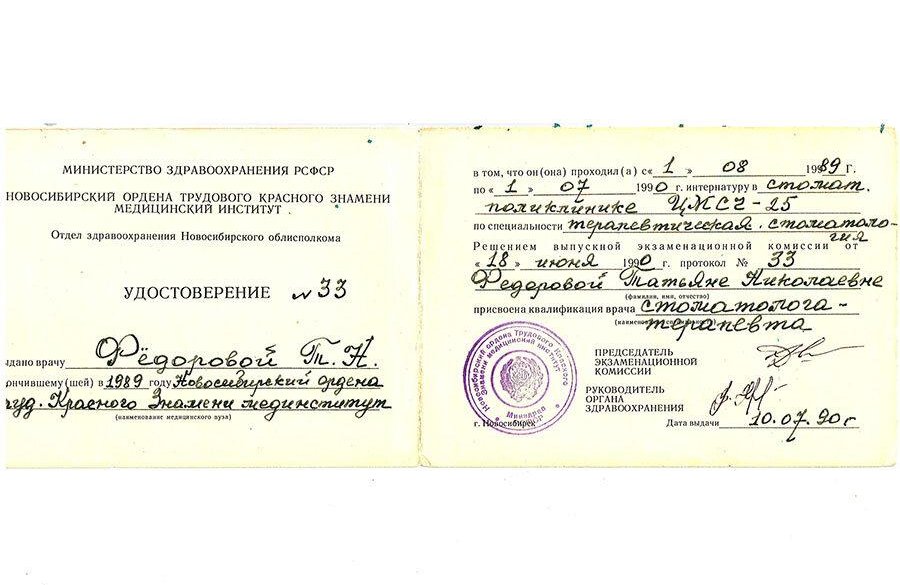 МИНИСТЕРСТВО ЗДРАВООХРАНЕНИЯ РСФСР
НОВОСИБИРСКИЙ ОРДЕНА ТРУДОВОГО КРАСНОГО ЗНАМЕНИ
МЕДИЦИНСКИЙ ИНСТИТУТ
Отдел здравоохранения Новосибирского облисполкома
УДОСТОВЕРЕНИЕ № 33
дано врачу Фёдоровой Т. Н.
ончившему (шей) в 1989 году Новосибирский ордена
уд. Красного Знамени мединститут
(наименование медицинского вуза)
в том, что он(она) проходил(а) с « 1 » 08 1989 г.
по « 1 » 07 1990 г. интернатуру в стомат.
поликлинике ЦМСЧ-25
по специальности терапевтическая стоматоло-
гия
Решением выпускной экзаменационной комиссии от
« 18 » июня 1990 г. протокол № 33
Федоровой Татьяне Николаевне
(фамилия, имя, отчество)
присвоена квалификация врача стоматолога-
терапевта
Новосибирский ордена Трудового Красного Знамени медицинский институт
Минздрав
г. Новосибирск
ПРЕДСЕДАТЕЛЬ
ЭКЗАМЕНАЦИОННОЙ
КОМИССИИ
РУКОВОДИТЕЛЬ
ОРГАНА
ЗДРАВООХРАНЕНИЯ
Дата выдачи 10.07.90 г